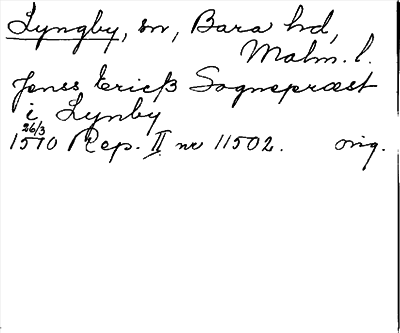 Lyngby, sn, Bara hd,
Malm. l.
Jenss Ericß Sognepræst
i Lynby
26/3
1510 Rep. II nr 11502. orig.